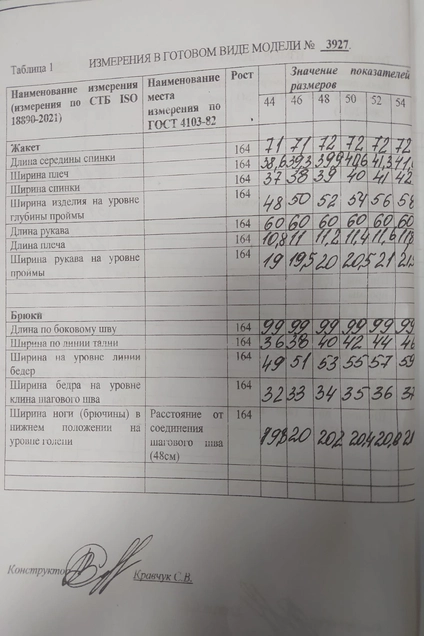 Таблица 1 ИЗМЕРЕНИЯ В ГОТОВОМ ВИДЕ МОДЕЛИ № 3927
Наименование измерения (измерения по СТБ ISO 18890-2021) Наименование места измерения по ГОСТ 4103-82 Рост Значение показателей размеров
44 46 48 50 52 54
Жакет
Длина середины спинки 164 71 71 72 72 72 72
Ширина плеч 164 38,6 39,3 39,9 40,6 41,3 41,
Ширина спинки 164 37 38 39 40 41 42
Ширина изделия на уровне глубины проймы 164 48 50 52 54 56 58
Длина рукава 164 60 60 60 60 60 60
Длина плеча 164 10,8 11 11,2 11,4 11,6 11,
Ширина рукава на уровне проймы 164 19 19,5 20 20,5 21 21,
Брюки
Длина по боковому шву 164 99 99 99 99 99 99
Ширина по линии талии 164 36 38 40 42 44 46
Ширина на уровне линии бедер 164 49 51 53 55 57 59
Ширина бедра на уровне клина шагового шва 164 32 33 34 35 36 37
Ширина ноги (брючины) в нижнем положении на уровне голени Расстояние от соединения шагового шва (48см) 164 19,8 20 20,2 20,4 20,8
Конструктор Кравчук С.В.